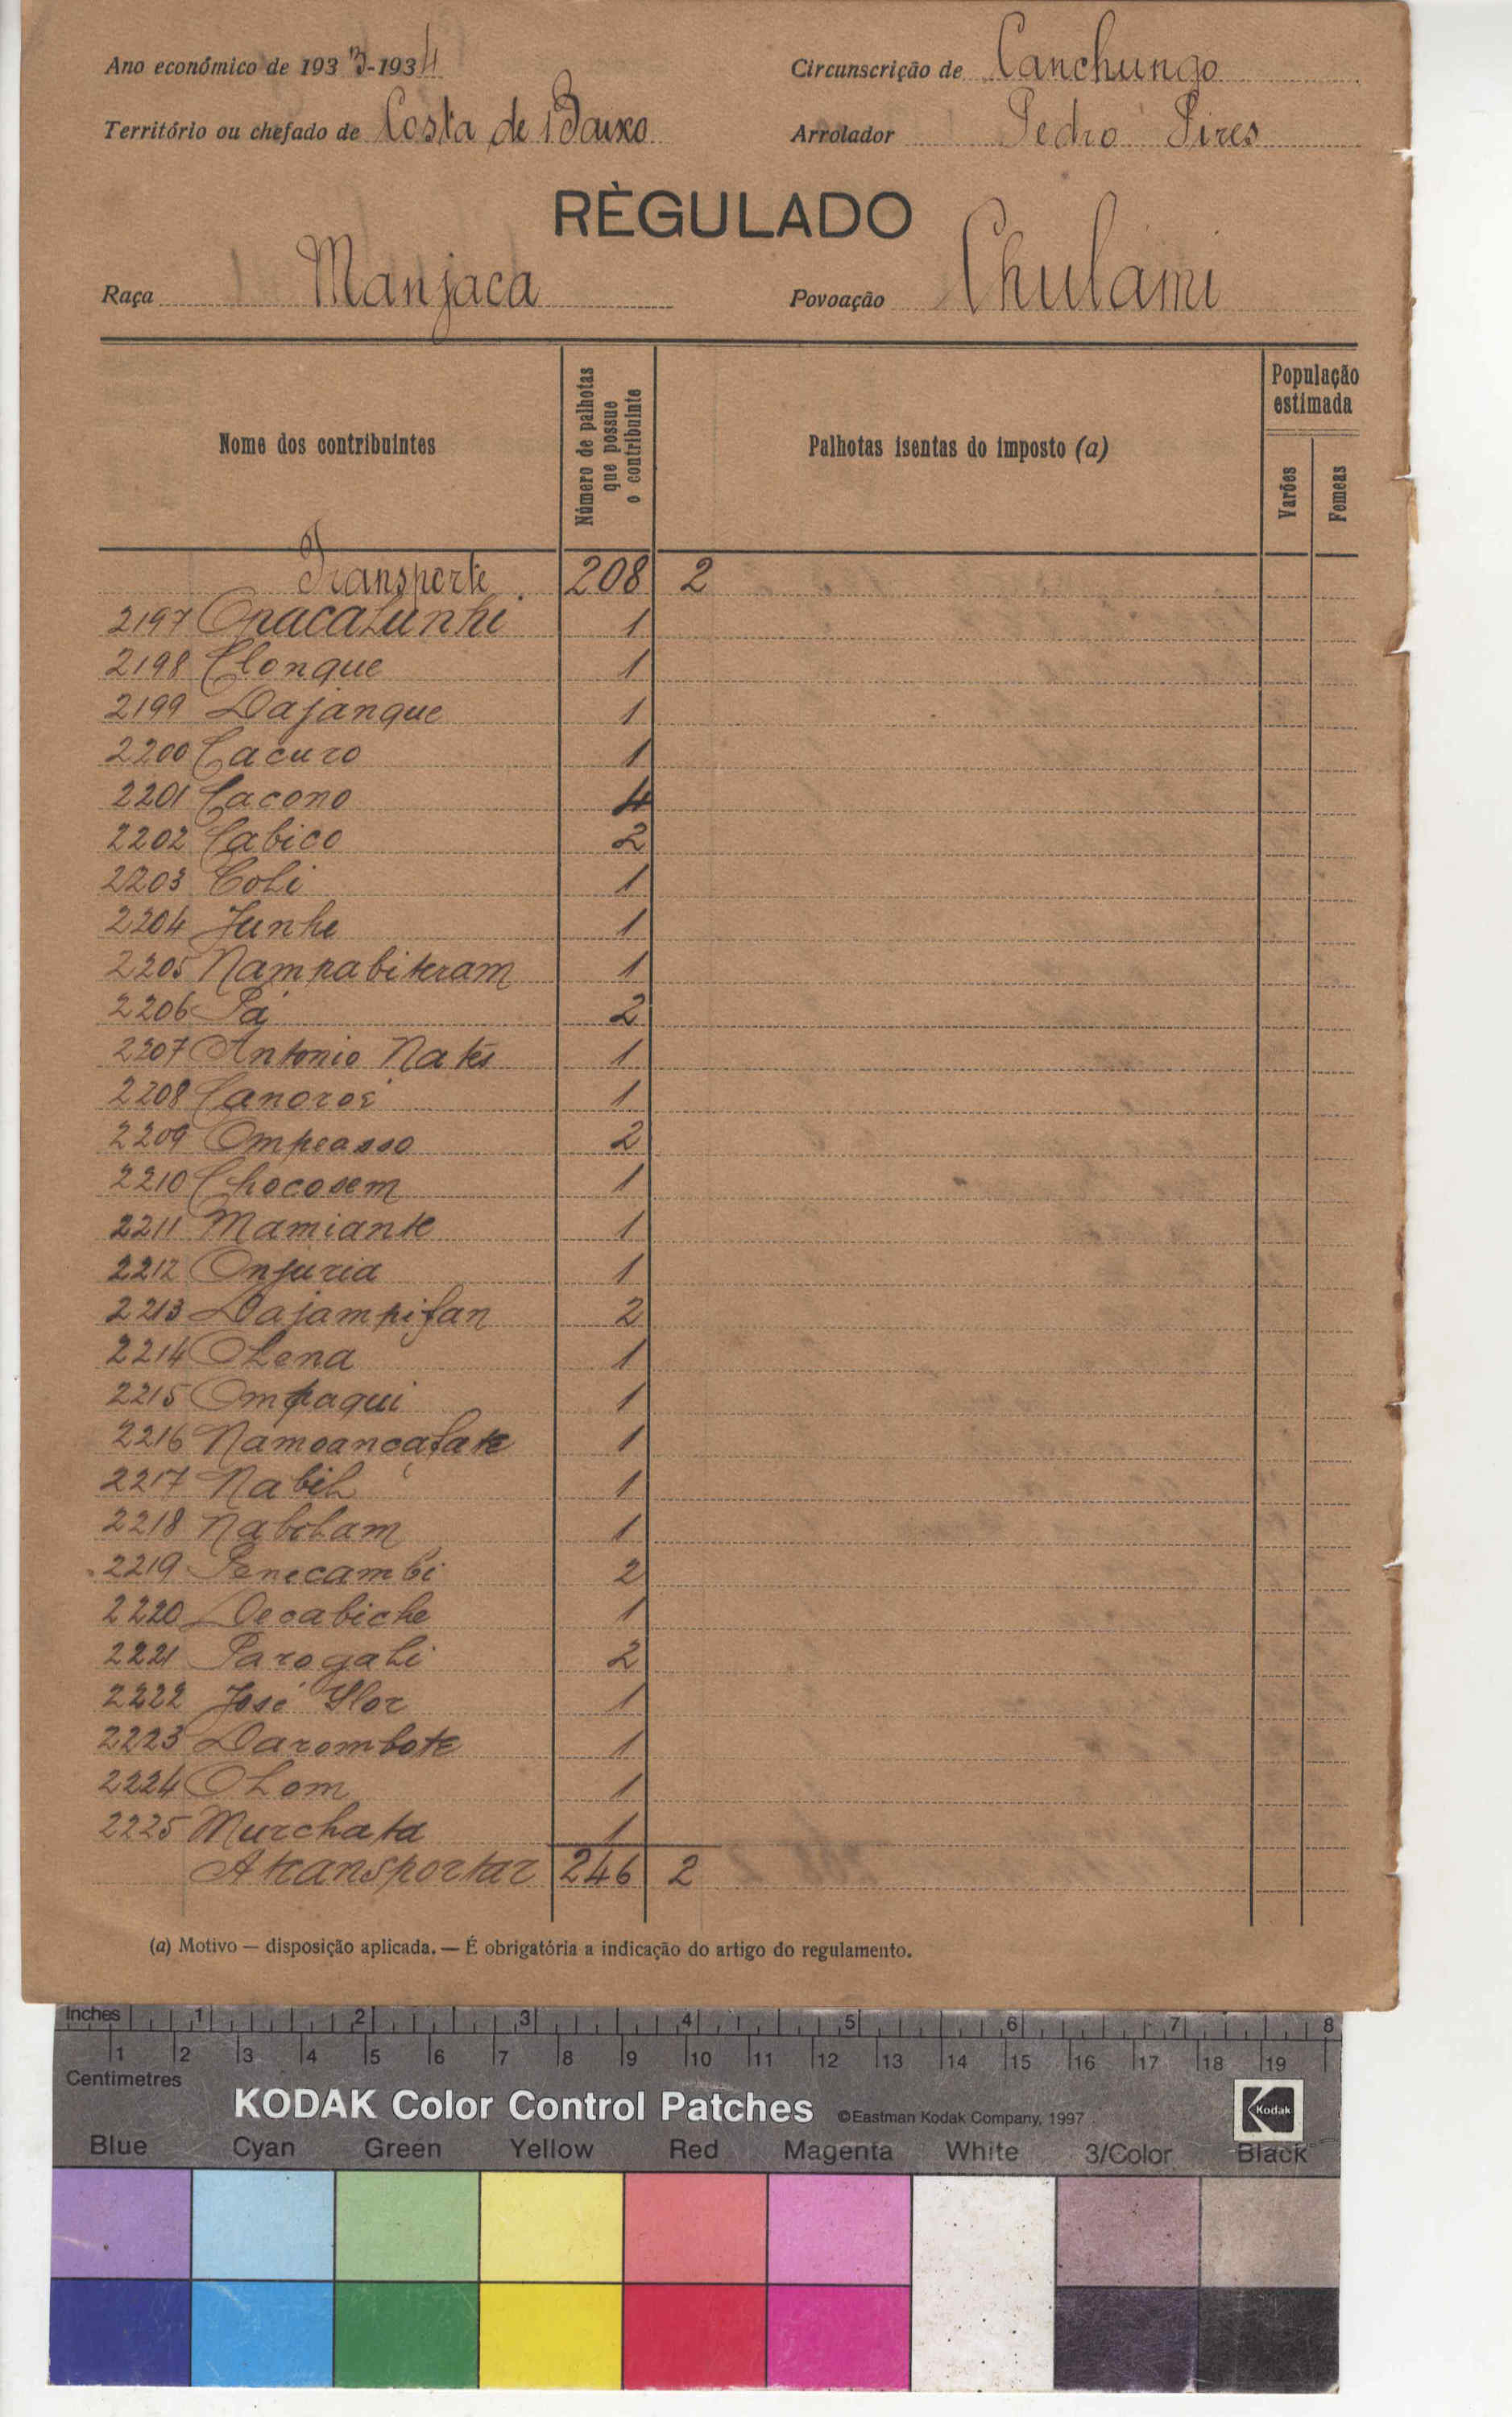 Ano económico de 1933-1934 Circunscrição de Canchungo
Território ou chefado de Costa de Baixo Arrolador Pedro Pires
RÈGULADO
Raça Manjaca Povoação Chulami
Nome dos contribuintes
Número de palhotas que possue o contribuinte
Palhotas isentas do imposto (a)
População estimada
Varões
Femeas
Transporte 208 2
2197 1
2198 Clonque 1
2199 Dajanque 1
2200 Cacuro 1
2201 Cacono 4
2202 Cabico 2
2203 Coli 1
2204 Junhe 1
2205 Nampabiteram 1
2206 Pá 2
2207 Antonio Natés 1
2208 1
2209 Ompeasso 2
2210 Chocosem 1
2211 Mamiante 1
2212 Onjuria 1
2213 Dajampifan 2
2214 OLena 1
2215 Ompaqui 1
2216 Namoancafate 1
2217 Nabil 1
2218 Nabolam 1
2219 Penecambi 2
2220 Decabiche 1
2221 Parogali 2
2222 José Flor 1
2223 Darombote 1
2224 OLom 1
2225 Murchata 1
A transportar 246 2
(a) Motivo — disposição aplicada. — É obrigatória a indicação do artigo do regulamento.
Inches 1 2 3 4 5 6 7 8
1 2 3 4 5 6 7 8 9 10 11 12 13 14 15 16 17 18 19
Centimetres
KODAK Color Control Patches ©Eastman Kodak Company, 1997 Kodak
Blue Cyan Green Yellow Red Magenta White 3/Color Black